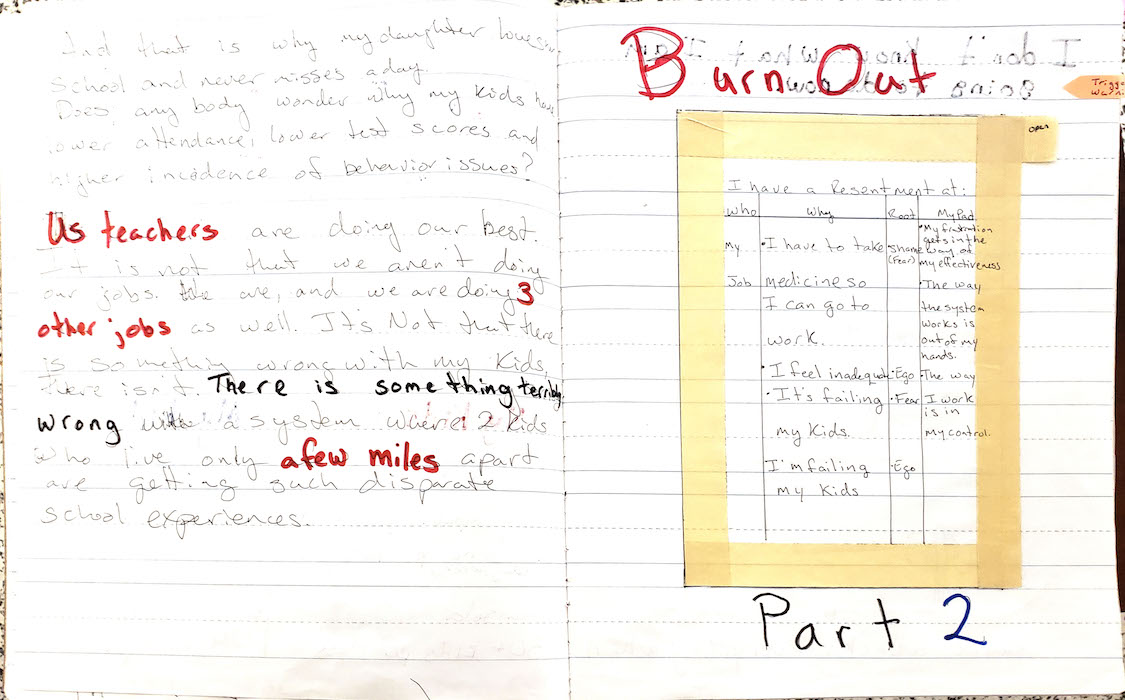 And that is why my daughter loves
school and never misses a day
Does any body wonder why my kids have
lower attendance, lower test scores and
higher incidence of behavior issues?
Us teachers are doing our best.
It is not that we aren't doing
our jobs. We are, and we are doing 3
other jobs as well. It's Not that there
is something wrong with my kids,
there isn't. There is something terribly
wrong with a system where 2 kids
who live only a few miles apart
are getting such disparate
school experiences.
I don't know what I am
going to do now
Burn Out
Trigg
Warni
open
I have a Resentment at:
Who Why Root My Part
My Job
• I have to take
medicine so
I can go to
work.
shame
(Fear)
• My frustration
gets in the
way of
my effectiveness
• The way
the system
works is
out of my
hands.
• I feel inadequate
• Ego
• The way
I work
is in
my control.
• It's failing
my kids.
• Fear
I'm failing
my kids
• Ego
Part 2